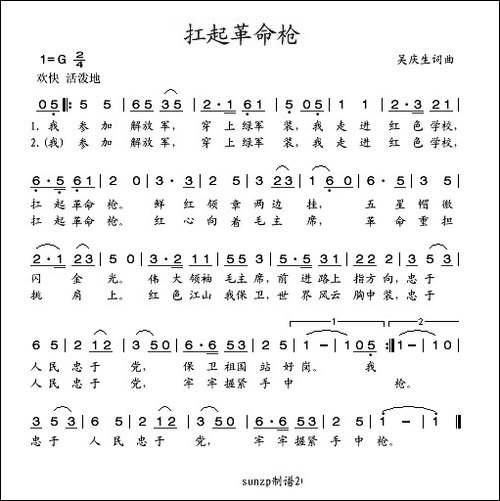 扛起革命枪
1=G 2/4
吴庆生词曲
欢快 活泼地
05 ‖: 5 5 | 65 35 | 2·1 61 | 5 05 | 5 3 | 2·3 55 |
1. 我 参 加 解放 军, 穿 上 绿军 装, 我 走 进 红 色 学校,
2. (我) 参 加 解放 军, 穿 上 绿军 装, 我 走 进 红 色 学校,
6·5 61 | 2 0 | 3·3 | 2 5 | 3 23 | 1 60 | 6·5 | 3 5 |
扛 起 革命 枪。 鲜 红 领 章 两 边 挂, 五 星 帽 徽
扛 起 革命 枪。 红 心 向 着 毛 主 席, 革 命 重 担
2 12 | 3 0 | 5·3 23 | 5·1 6 | 1·6 12 | 3·5 2 | 3 53 |
闪 金 光。 伟 大 领袖 毛主 席, 前 进 路上 指方 向, 忠 于
挑 肩 上。 红 色 江山 我保 卫, 世 界 风云 胸中 装, 忠 于
6 5 | 2 12 | 3 0 | 6·6 53 | 2 5 | 1 – | 105 :‖ 1 – | 10 |
1
2
人 民 忠 于 党, 保 卫 祖国 站 好 岗。 我
人 民 忠 于 党, 牢 牢 握紧 手 中 枪。
3 53 | 6 5 | 2 12 | 3 0 | 6·6 53 | 2 5 | 1 – | 1 – ‖
忠 于 人 民 忠 于 党, 牢 牢 握紧 手 中 枪。
sunzp制谱